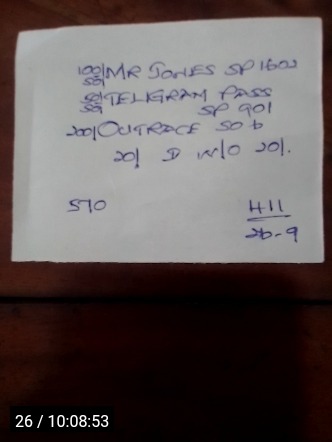 100/ MR JONES SP 1602
50/
50/ TELIGRAM PASS
50/ SP 901
200/ OUTRACE SO 6
20/ D W/O 20/.
510 H11
26-9
26 / 10:08:53